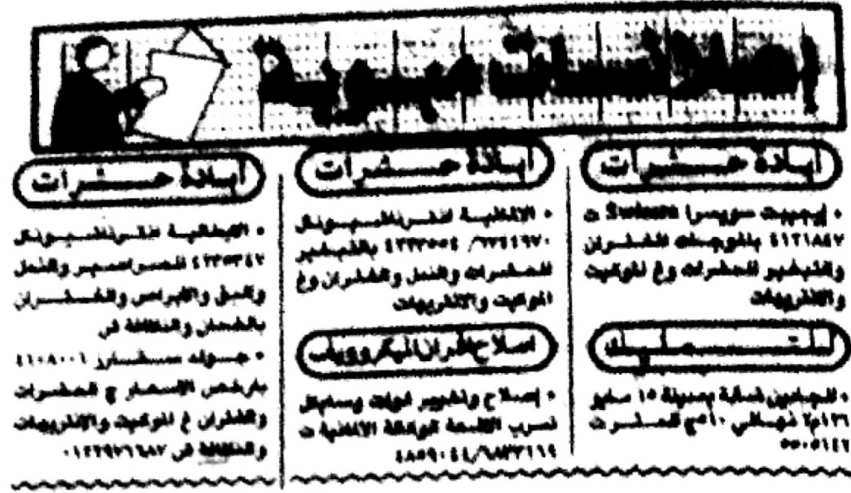 إعلانات مبوبة
أبادة حشرات
• إيجيبت سويسرا Swissra ت
٤١٢١٨٤٧ بالموجات للفئران
والتبخير للحشرات وغ الموكيت
والانتريهات
للتمليك
• للجادين شقة بمدينة ١٥ مايو
٥٥٠٥١٤٢
أبادة حشرات
• الالمانية انترناشيونال
٦٢٤٤٩٧٠/ ٤٢٣٣٥٥٤ بالتبخير
للحشرات والنمل والفئران وغ
الموكيت والانتريهات
اصلاح افران الميكروويف
• إصلاح وتغيير
تسرب الأشعة الوكالة الالمانية ت
٤٨٥٩٠٤٤/٦٨٢٣١١٩
أبادة حشرات
• الايطالية انترناشيونال
٤٢٣٥٣٤٧ للصراصير والنمل
والبق والابراص والفئران
بالضمان والنظافة ش
• جولد ستارز ٤١٠٨٠٠٦
بارخص الاسعار ج الحشرات
والفئران غ الموكيت والانتريهات
والنظافة ش ٠١٢٢٩٧٦٦٨٧